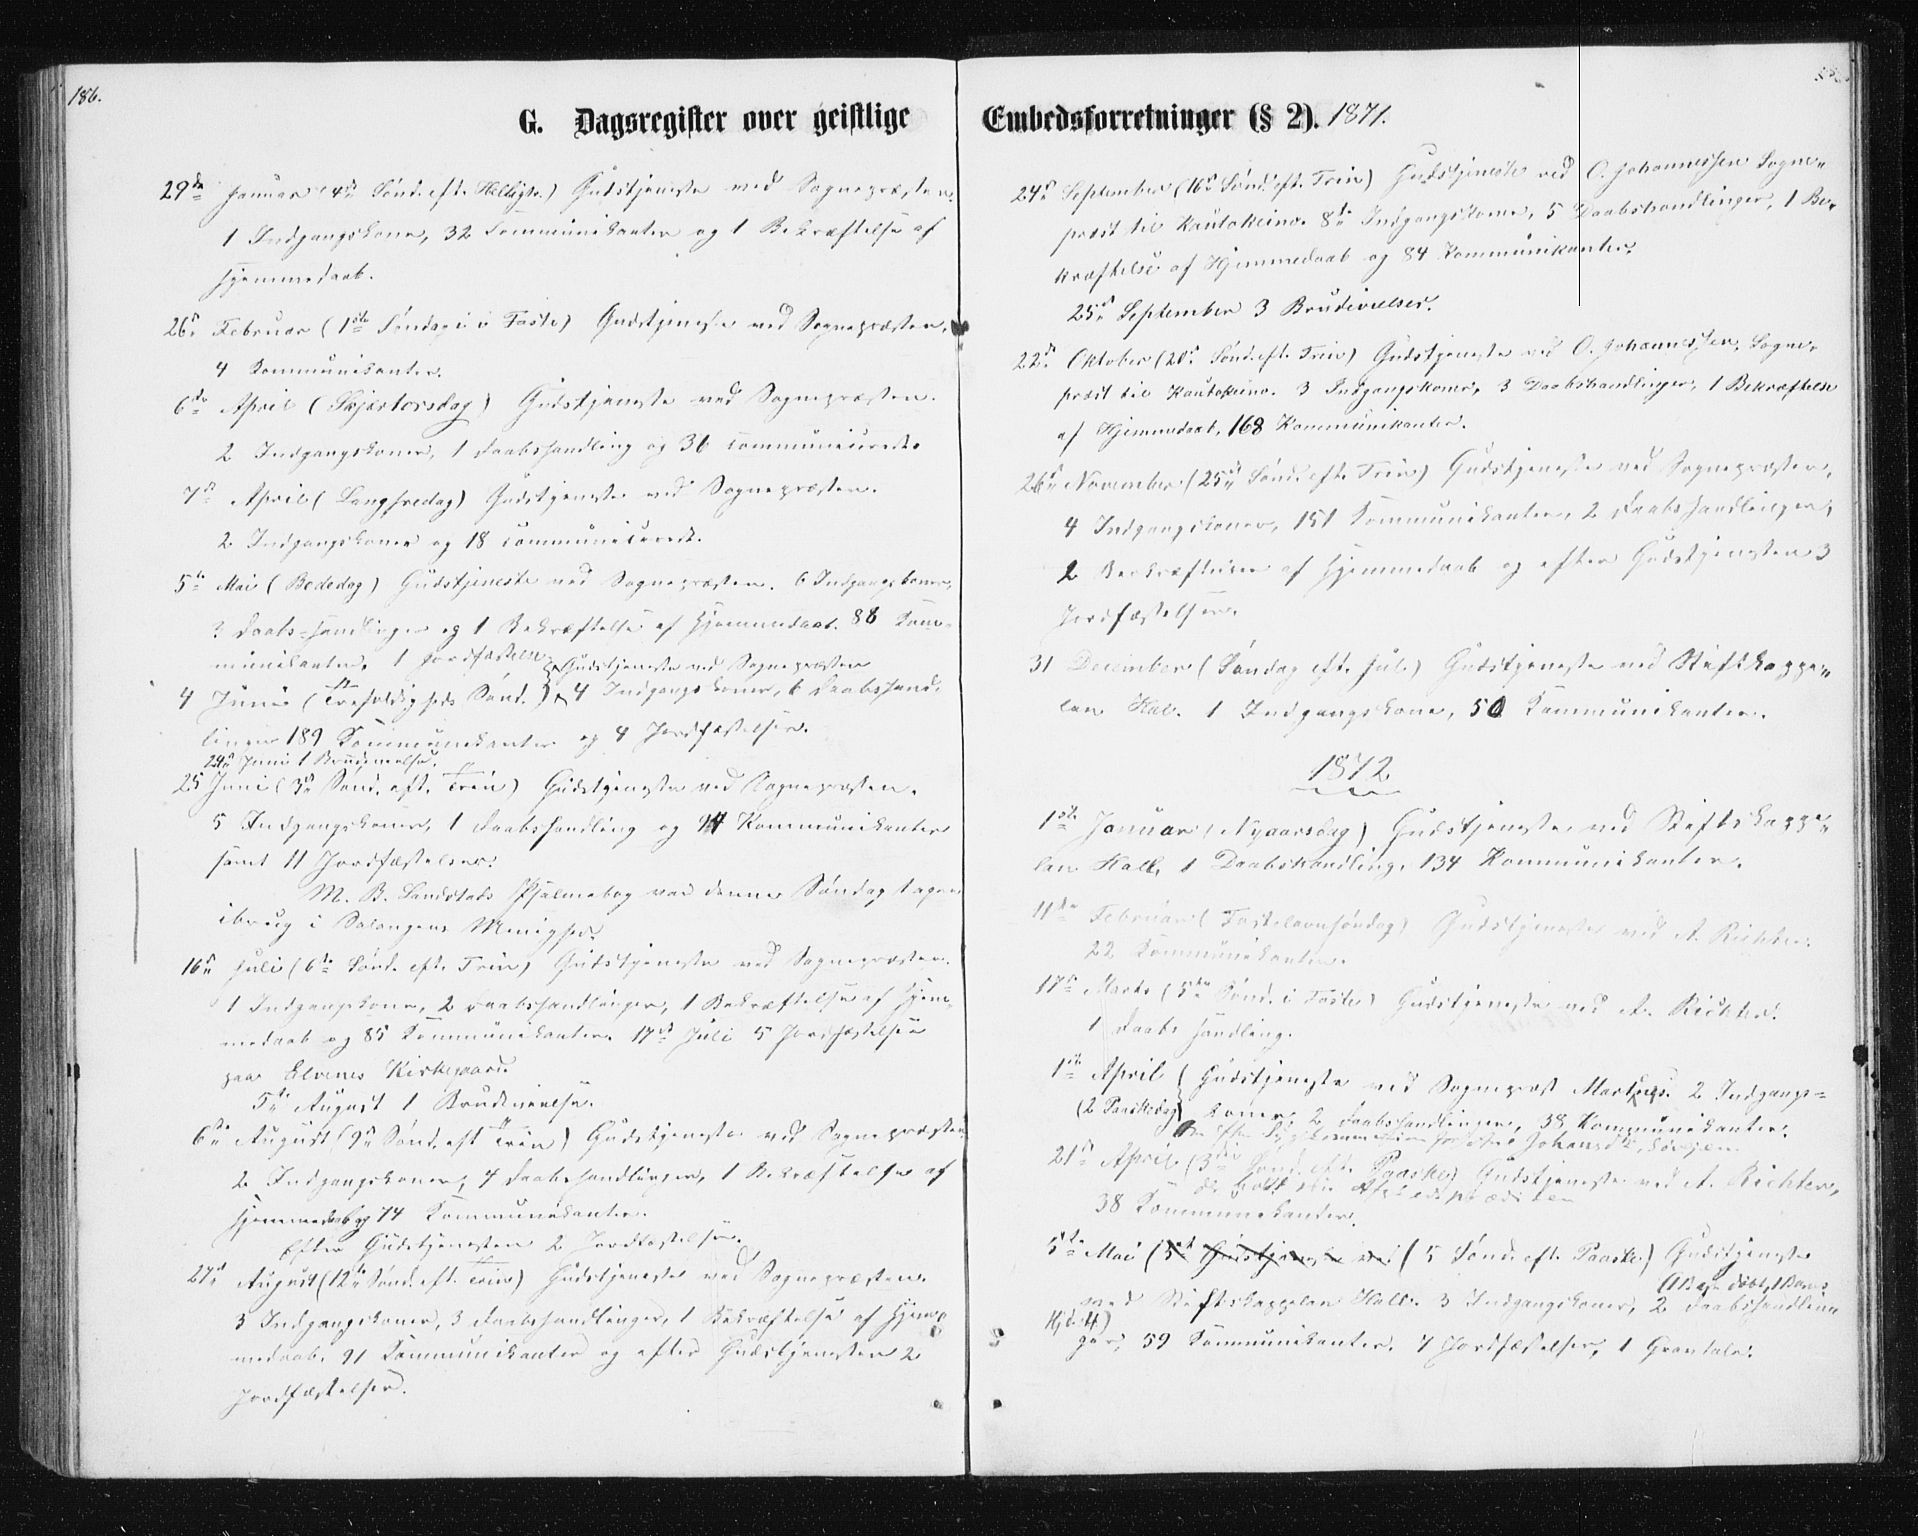 186.
G. Dagsregister over geistlige
29de Januar (4de Sønd. eft. Helligtr.) Gudstjeneste ved Sognepræsten.
1 Indgangskone, 32 Communikanter og 1 Bekræftelse af
Hjemmedaab.
26de Februar (1ste Søndag i Faste) Gudstjeneste ved Sognepræsten,
4 Kommunikanter.
6te April (Skjærtorsdag) Gudstjeneste ved Sognepræsten.
2 Indgangskoner, 1 Daabshandling og 36 communicerede
7de April (Langfredag) Gudstjeneste ved Sognepræsten.
2 Indgangskoner og 18 communicerede.
5te Mai (Bededag) Gudstjeneste ved Sognepræsten. 6 Indgangskoner,
3 Daabshandlinger og 1 Bekræftelse af Hjemmedaab. 88 Kom-
munikanter, 1 Jordfæstelse
Gudstjeneste ved Sognepræsten
4 Juni (Trefoldigheds Sønd.) 4 Indgangskoner, 6 Daabshand-
linger 189 Kommunikanter og 4 Jordfæstelser.
24de Juni 1 Brudevielse.
25 Juni (3de Sønd. eft. Trin) Gudstjeneste ved Sognepræsten.
5 Indgangskoner, 1 Daabshandling og Kommunikanter
samt 11 Jordfæstelser.
M. B. Landstads Psalmebog var denne Søndag tagen
ibrug i Salangens Menighed.
16de Juli (6te Sønd. eft. Trin) Gudstjeneste ved Sognepræsten.
1 Indgangskone, 2 Daabshandlinger, 1 Bekræftelse af Hjem-
medaab og 85 Kommunikanter. 17de Juli 5 Jordfæstelser
paa Elvenes Kirkegaard.
5te August 1 Brudevielse.
6te August (9de Sønd. eft Trin) Gudstjeneste ved Sognepræsten
2 Indgangskoner, 4 Daabshandlinger, 1 Bekræftelse af
Hjemmedaab og 74 Kommunikanter.
Efter Gudstjenesten 2 Jordfæstelser.
27de August (12te Sønd. eft. Trin) Gudstjeneste ved Sognepræsten.
3 Indgangskoner, 3 Daabshandlinger, 1 Bekræftelse af Hjem-
medaab, 91 Kommunikanter og efter Gudstjenesten 2
Jordfæstelser.
Embedsforretninger (§ 2). 1871.
24de September (16de Sønd. eft. Trin) Gudstjeneste ved O. Johannessen Sogne-
præst til Kautokeino. 8te Indgangskone, 5 Daabshandlinger, 1 Be-
kræftelse af Hjemmedaab og 84 Kommunikanter.
25de September 3 Brudevielser.
22de Oktober (20de Sønd. eft. Trin) Gudstjeneste ved O. Johannessen, Sogne-
præst til Kautokeino. 3 Indgangskoner, 3 Daabshandlinger, 1 Bekræftelse
af Hjemmedaab, 168 Kommunikanter.
26de November (25de Sønd. eft. Trin) Gudstjeneste ved Sognepræsten,
4 Indgangskoner, 151 Kommunikanter, 2 Daabshandlinger,
2 Bekræftelser af Hjemmedaab og efter Gudstjenesten 3
Jordfæstelser.
31 December (Søndag eft. Jul.) Gudstjeneste ved Stiftskappe-
lan Hall. 1 Indgangskone, 50 Kommunikanter.
1872
1ste Januar (Nyaarsdag) Gudstjeneste ved Stiftskappe-
lan Hall, 1 Daabshandling, 134 Kommunikanter.
11te Februar (Fastelavnsøndag) Gudstjeneste ved A. Richter.
22 Kommunikanter.
17de Marts (5te Sønd. i Faste) Gudstjeneste ved A. Richter.
1 Daabshandling.
1ste April (Gudstjeneste ved Sognepræst 2 Indgangs-
(2 Paaskedag) koner, 2 Daabshandlinger, 38 Kommunikanter.
21de April (3die Sønd. eft. Paaske) Gudstjeneste ved A. Richter,
38 Kommunikanter.
5te Mai (5 Sønd. eft. Paaske) Gudstjeneste
ved Stiftskappelan Hall. 3 Indgangskoner, 2 Daabshandlin-
ger, 59 Kommunikanter, 4 Jordfæstelser, 1 Gravtale.